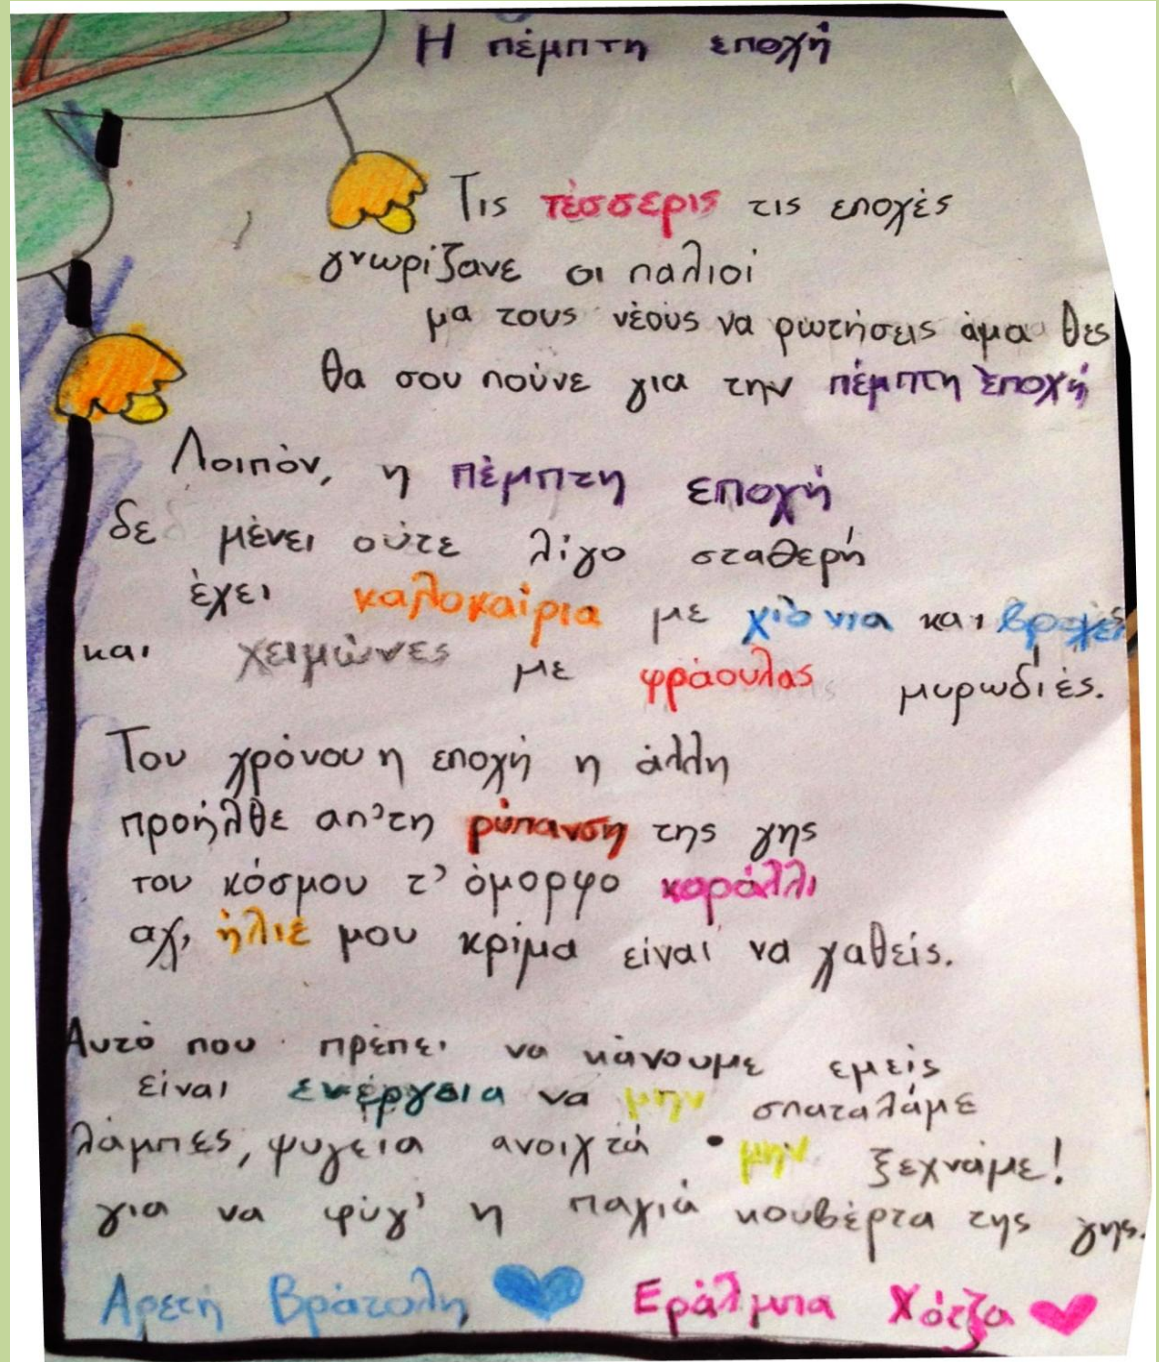 Η πέμπτη εποχή
Τις τέσσερις τις εποχές
γνωρίζανε οι παλιοί
μα τους νέους να ρωτήσεις άμα θες
θα σου πούνε για την πέμπτη εποχή
Λοιπόν, η πέμπτη εποχή
δε μένει ούτε λίγο σταθερή
έχει καλοκαίρια με χιόνια και βροχές
και χειμώνες με φράουλας μυρωδιές.
Του χρόνου η εποχή η άλλη
προήλθε απ'τη ρύπανση της γης
του κόσμου τ' όμορφο κοράλλι
αχ, ήλιε μου κρίμα είναι να χαθείς.
Αυτό που πρέπει να κάνουμε εμείς
είναι ενέργεια να μην σπαταλάμε
λάμπες, ψυγεία ανοιχτά • μην ξεχνάμε!
για να φύγ' η παχιά κουβέρτα της γης.
Αρετή Βράτολη Εράλμπα Χότζα